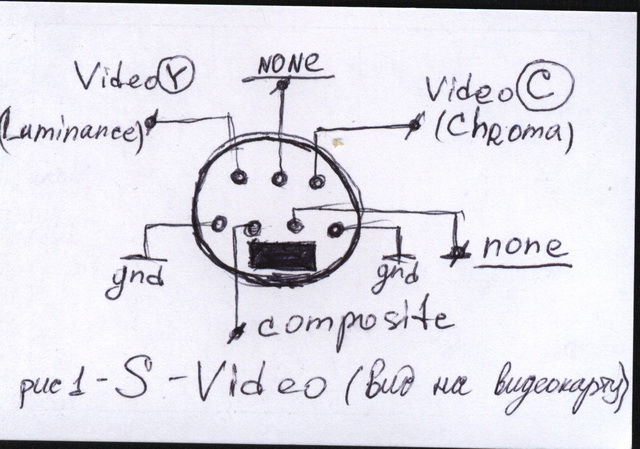 NONE
Video Y
Video C
(Luminance)
(Chroma)
none
gnd
gnd
composite
рис 1 - S - Video (вид на видеокарту)